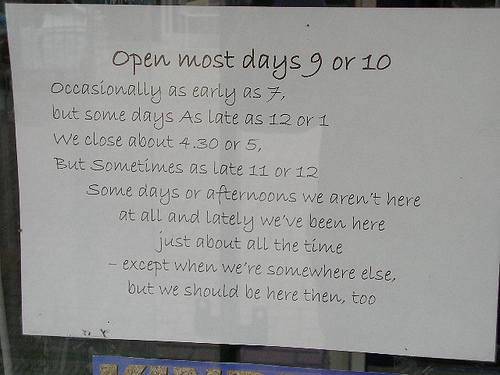 Open most days 9 or 10
Occasionally as early as 7,
but some days As late as 12 or 1
We close about 4.30 or 5,
But Sometimes as late 11 or 12
Some days or afternoons we aren't here
at all and lately we've been here
just about all the time
– except when we're somewhere else,
but we should be here then, too